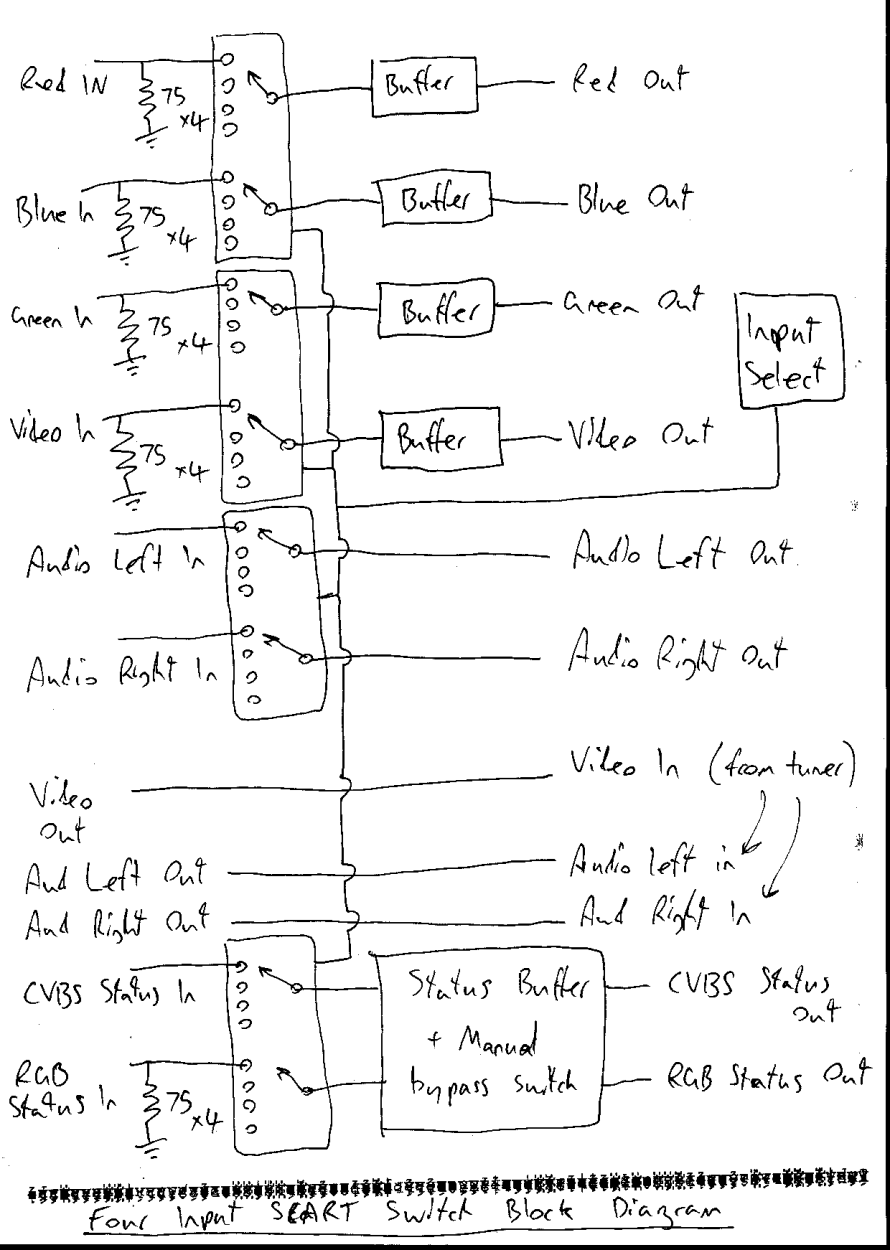 Red IN
75
x4
Buffer
Red Out
Blue In
75
x4
Buffer
Blue Out
Green In
75
x4
Buffer
Green Out
Input
Select
Video In
75
x4
Buffer
Video Out
Audio Left In
Audio Left Out
Audio Right In
Audio Right Out
Video
Out
Video In (from tuner)
Aud Left Out
Audio left in
Aud Right Out
Aud Right In
CVBS Status In
Status Buffer
+ Manual
bypass switch
CVBS Status
Out
RGB
Status In
75
x4
RGB Status Out
Four Input SCART Switch Block Diagram